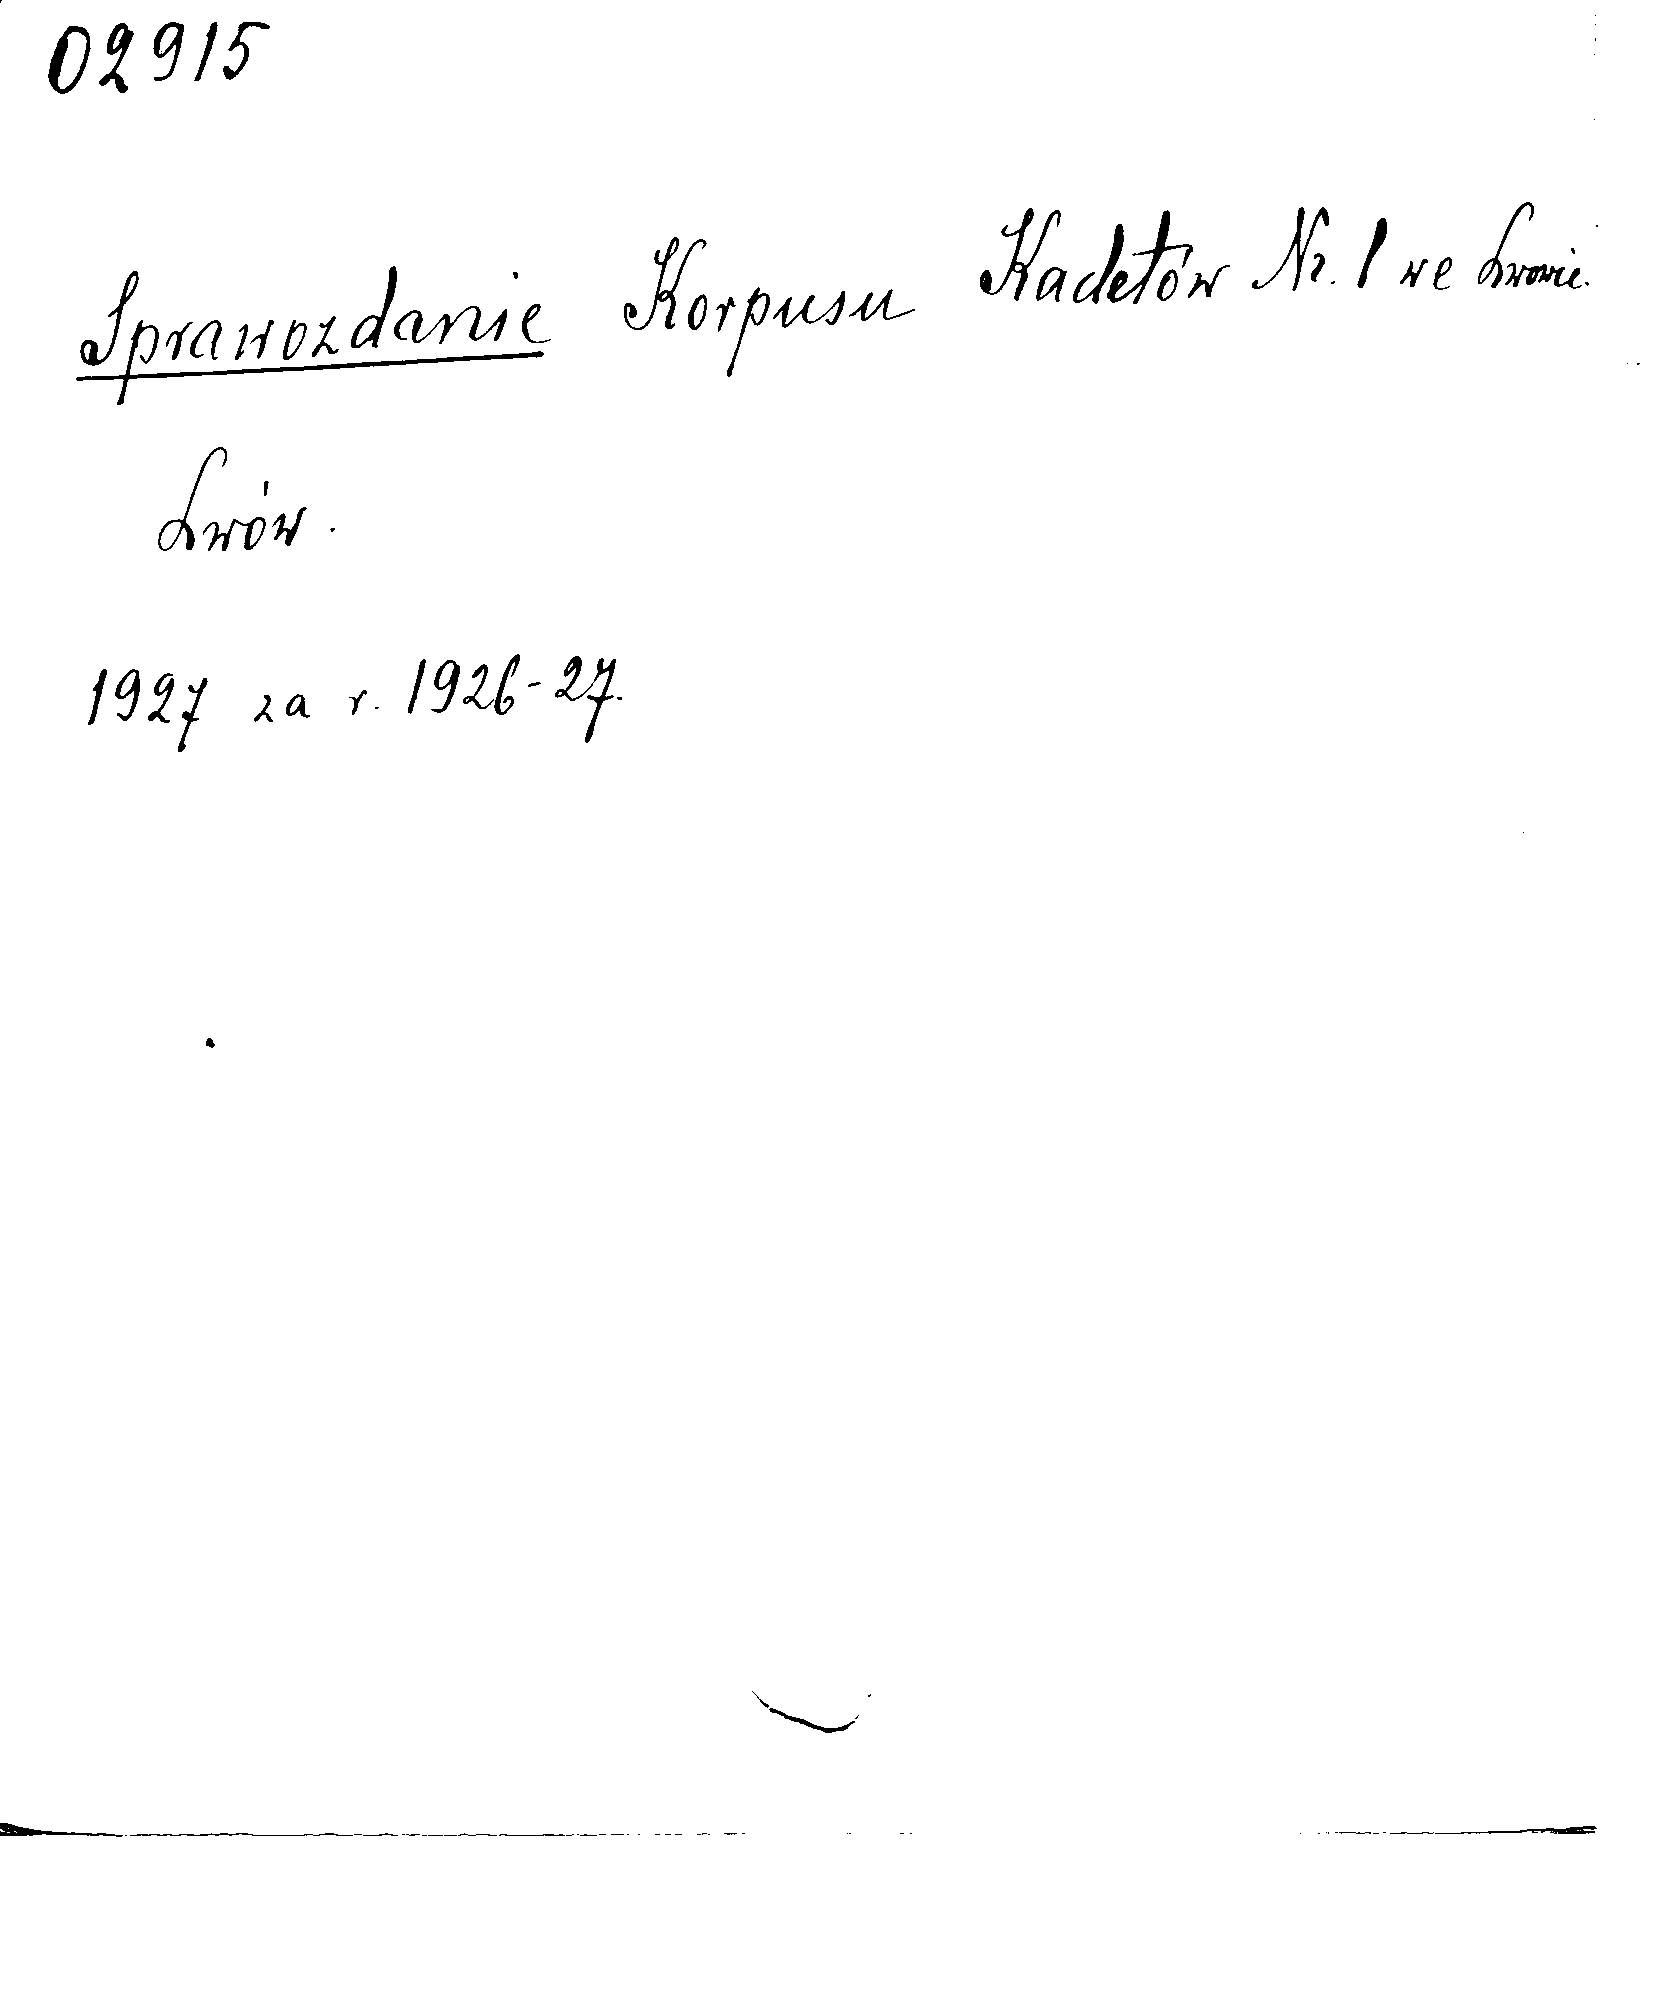 02915
Sprawozdanie Korpusu Kadetów Nr. 1 we Lwowie.
Lwów.
1927 za r. 1926-27.